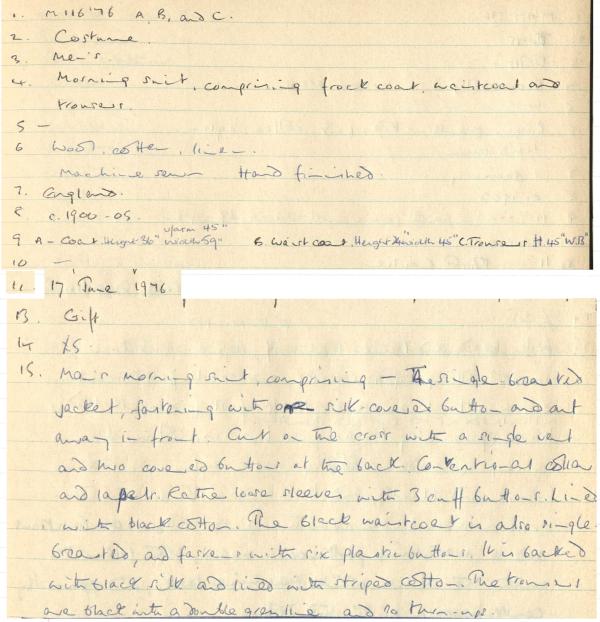 1. M116'76 A, B, and C.
2. Costume.
3. Men's
4. Morning suit, comprising frock coat, waistcoat and
trousers.
5 —
6 Wool, cotton, linen.
Machine sewn Hand finished.
7. England.
8 c. 1900-05.
9 A – Coat. Height 36" Width 59" B. Waistcoat. Height width 45" C. Trousers H. 45"
10 —
11. 17 June 1976
13. Gift
14 £5.
15. Men's morning suit, comprising – The single breasted
jacket, fastening with one silk-covered button and cut
away in front. Cut on the cross with a single vent
and two covered buttons at the back. Conventional collar
and lapels. Rather loose sleeves with 3 cuff buttons. Lined
with black cotton. The black waistcoat is also single-
breasted, and fastens with six plastic buttons. It is backed
with black silk and lined with striped cotton. The trousers
are black with a double grey line and no turn-ups.